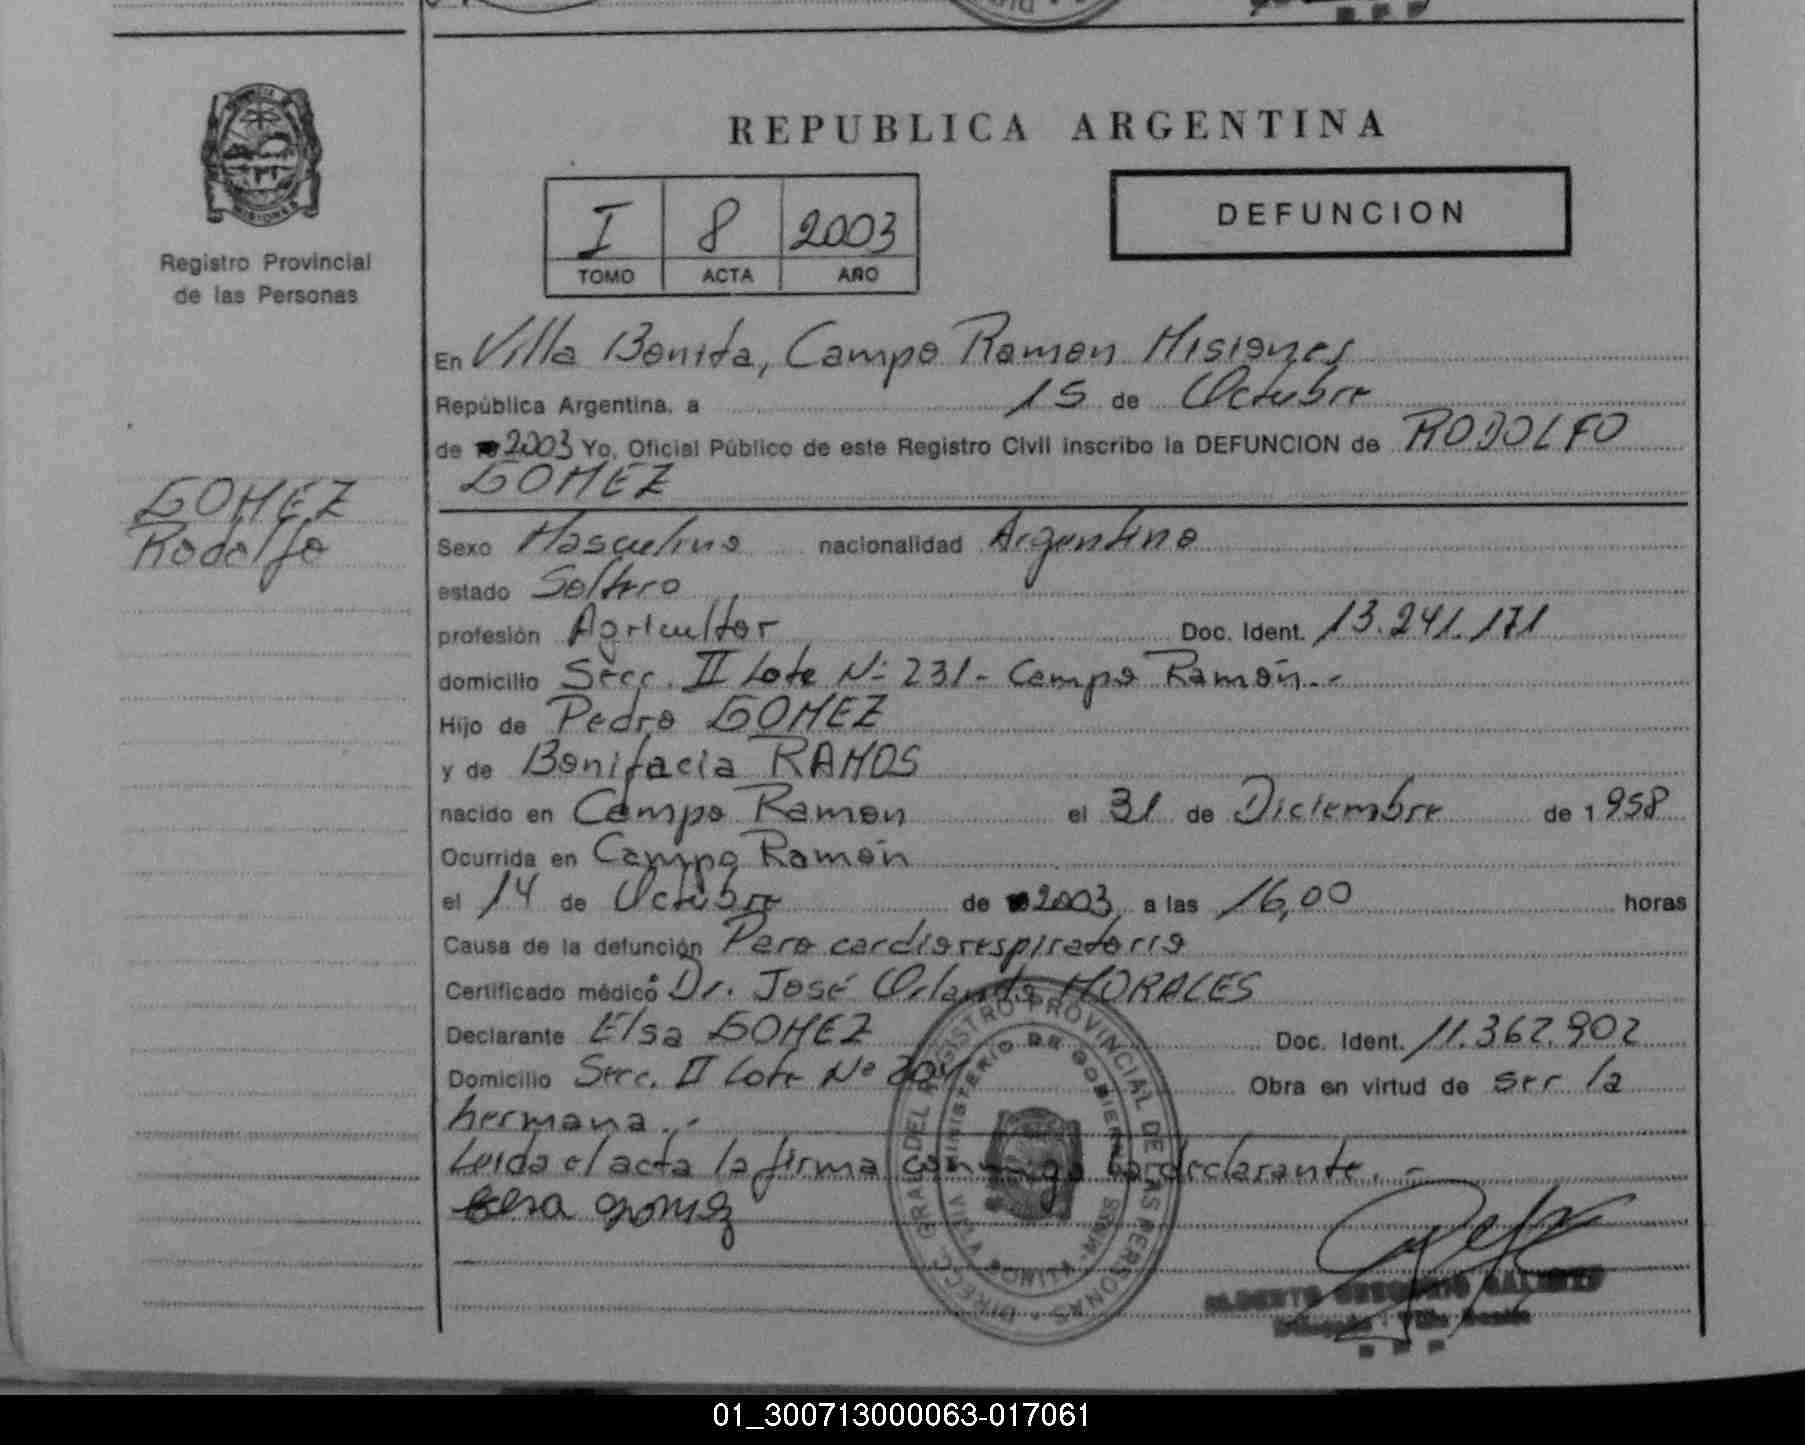 REPUBLICA ARGENTINA
MISIONES
Registro Provincial
de las Personas
I 8 2003
TOMO ACTA AÑO
DEFUNCION
En Villa Bonita, Campo Ramon Misiones
República Argentina, a 15 de Octubre
de 2003 Yo, Oficial Público de este Registro Civil inscribo la DEFUNCION de RODOLFO
GOMEZ
GOMEZ
Rodolfo
Sexo Masculino nacionalidad Argentina
estado Soltero
profesión Agricultor Doc. Ident. 13.241.171
domicilio Secc. II Lote Nº 231 - Campo Ramón.-
Hijo de Pedro GOMEZ
y de Bonifacia RAMOS
nacido en Campo Ramon el 31 de Diciembre de 1958
Ocurrida en Campo Ramón
el 14 de Octubre de 2003, a las 16,00 horas
Causa de la defunción Paro cardiorespiratorio
Certificado médico Dr. José Orlando MORALES
Declarante Elsa GOMEZ Doc. Ident. 11.362.902
Domicilio Secc. II Lote Nº Obra en virtud de ser la
hermana.-
Leida el acta la firma conmigo la declarante.-
elsa gomez
DIRECC. GRAL. DEL REGISTRO PROVINCIAL DE LAS PERSONAS
MINISTERIO DE GOBIERNO
VILLA BONITA - MNES
01_300713000063-017061